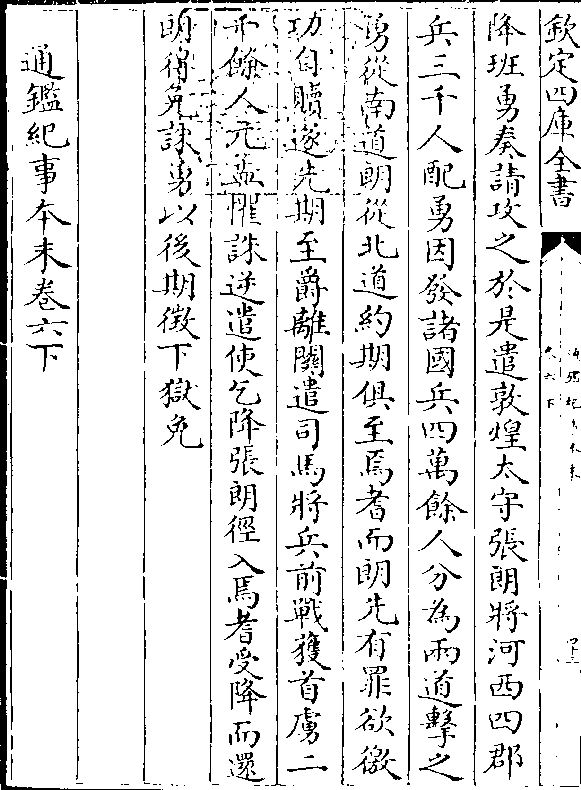 欽定四庫全書
降班勇奏請攻之於是遣敦煌太守張朗將河西四郡
兵三千人配勇因發諸國兵四萬餘人分為兩道擊之
勇從南道朗從北道約期俱至焉耆而朗先有罪欲徼
功自贖遂先期至爵離關遣司馬將兵前戰獲首虜二
千餘人元孟懼誅逆遣使乞降張朗徑入焉耆受降而還
朗得免誅勇以後期徴下獄免
通鑑紀事本末卷六下